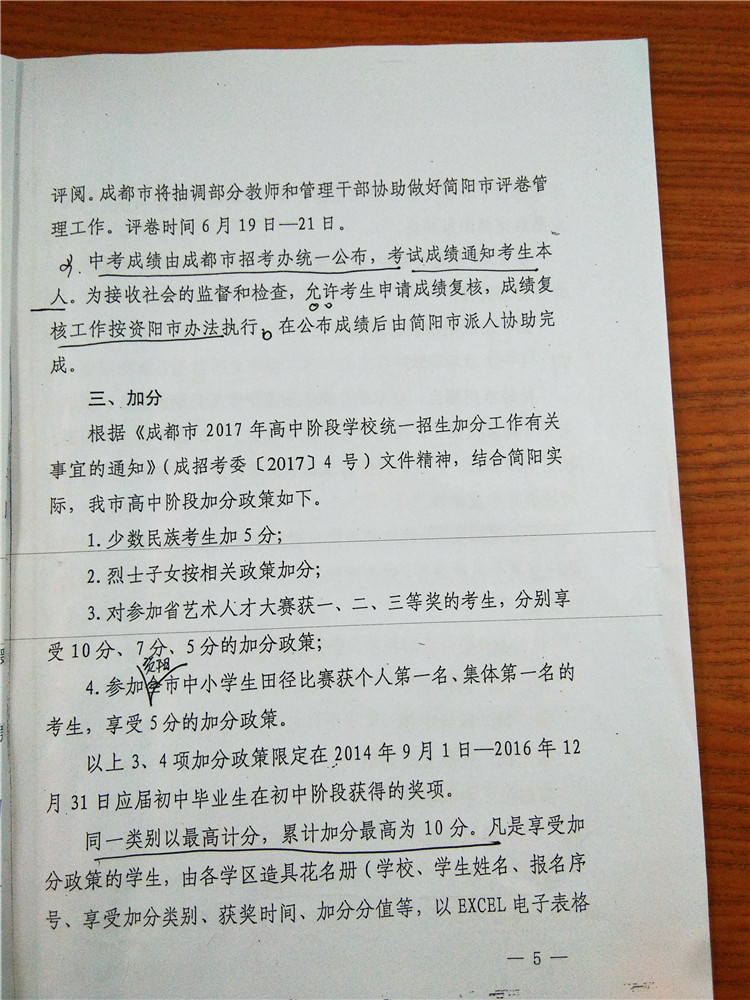 评阅。成都市将抽调部分教师和管理干部协助做好简阳市评卷管
理工作。评卷时间6月19日—21日。
中考成绩由成都市招考办统一公布，考试成绩通知考生本
人。为接收社会的监督和检查，允许考生申请成绩复核，成绩复
核工作按资阳市办法执行。在公布成绩后由简阳市派人协助完
成。
三、加分
根据《成都市2017年高中阶段学校统一招生加分工作有关
事宜的通知》（成招考委〔2017〕4号）文件精神，结合简阳实
际，我市高中阶段加分政策如下。
1.少数民族考生加5分；
2.烈士子女按相关政策加分；
3.对参加省艺术人才大赛获一、二、三等奖的考生，分别享
受10分、7分、5分的加分政策；
资阳
4.参加全市中小学生田径比赛获个人第一名、集体第一名的
考生，享受5分的加分政策。
以上3、4项加分政策限定在2014年9月1日—2016年12
月31日应届初中毕业生在初中阶段获得的奖项。
同一类别以最高计分，累计加分最高为10分。凡是享受加
分政策的学生，由各学区造具花名册（学校、学生姓名、报名序
号、享受加分类别、获奖时间、加分分值等，以EXCEL电子表格
— 5 —